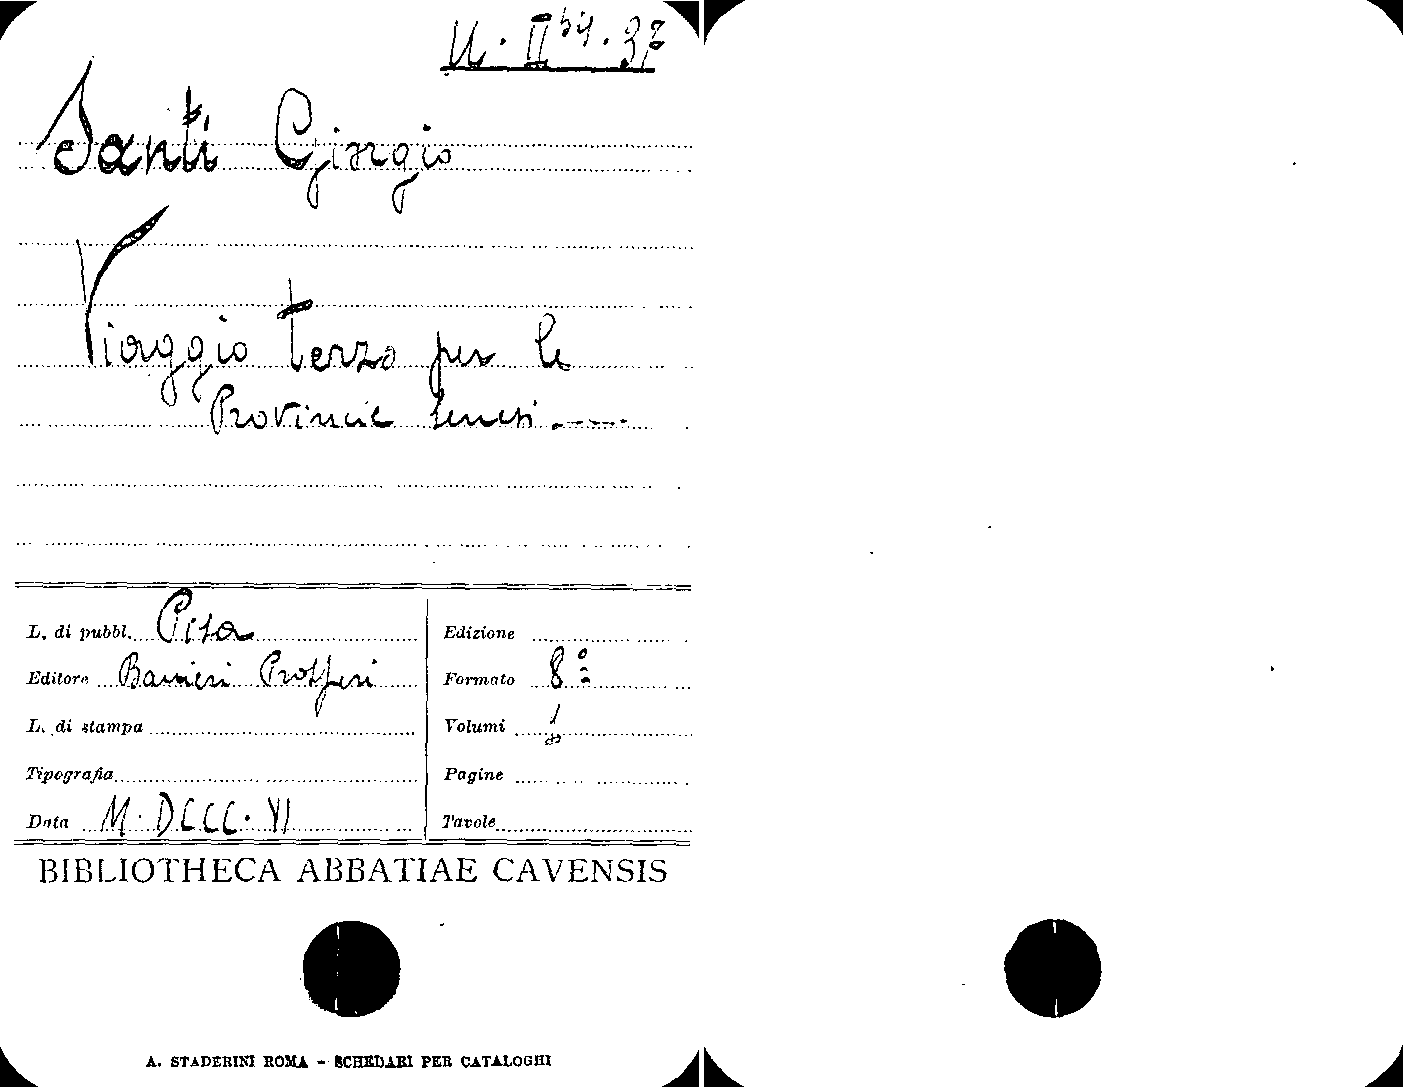 U. II bis. 37
Santi Giorgio
Viaggio terzo per le
Provincie senesi
L. di pubbl. Pisa
Edizione
Editore Ranieri Prosperi
Formato 8º
L. di stampa
Volumi 1
Tipografia
Pagine
Data M. DCCC. VI
Tavole
BIBLIOTHECA ABBATIAE CAVENSIS
A. STADERINI ROMA - SCHEDARI PER CATALOGHI